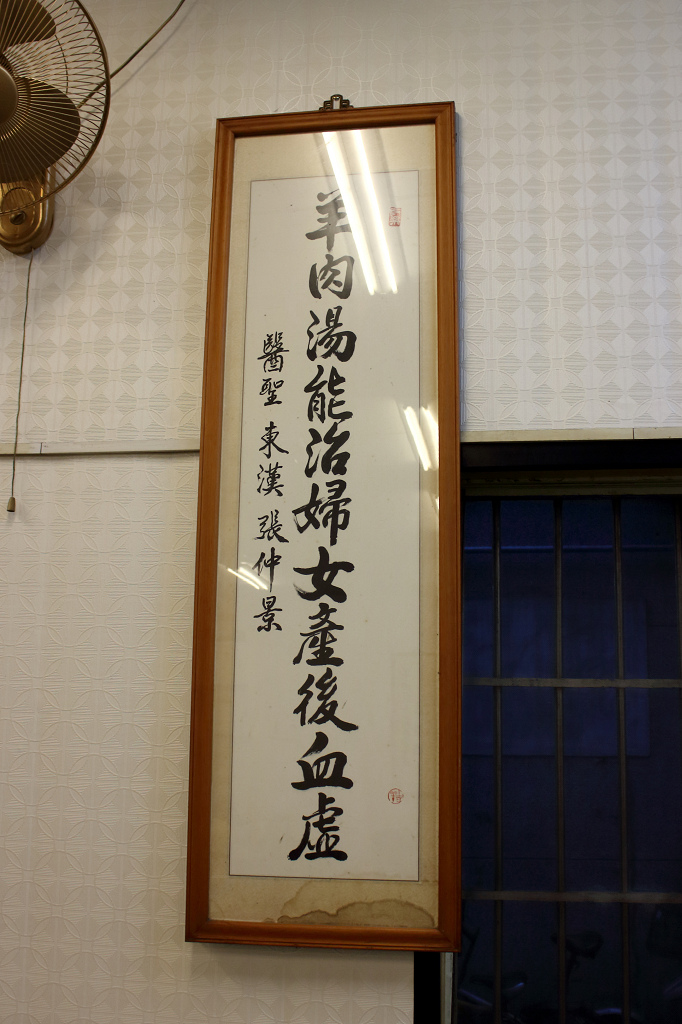 羊肉湯能治婦女產後血虛
醫聖 東漢 張仲景